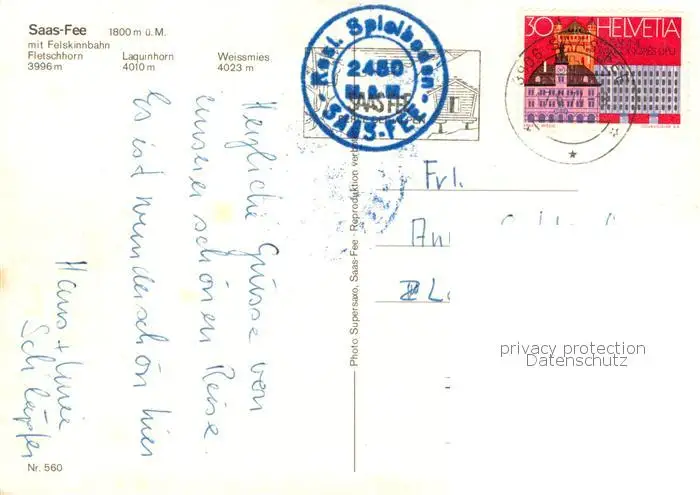 Saas-Fee 1800 m ü. M.
mit Felskinnbahn
Fletschhorn Laquinhorn Weissmies
3996 m 4010 m 4023 m
Rest. Spielboden
2450
SAAS-FEE
SAAS FEE
30 HELVETIA
Herzliche Grüsse von
unserer schönen Reise.
Es ist wunderschön hier
Hans +
Schläpfer
Photo Supersaxo, Saas-Fee - Reproduktion verboten
Frl.
privacy protection
Datenschutz
Nr. 560